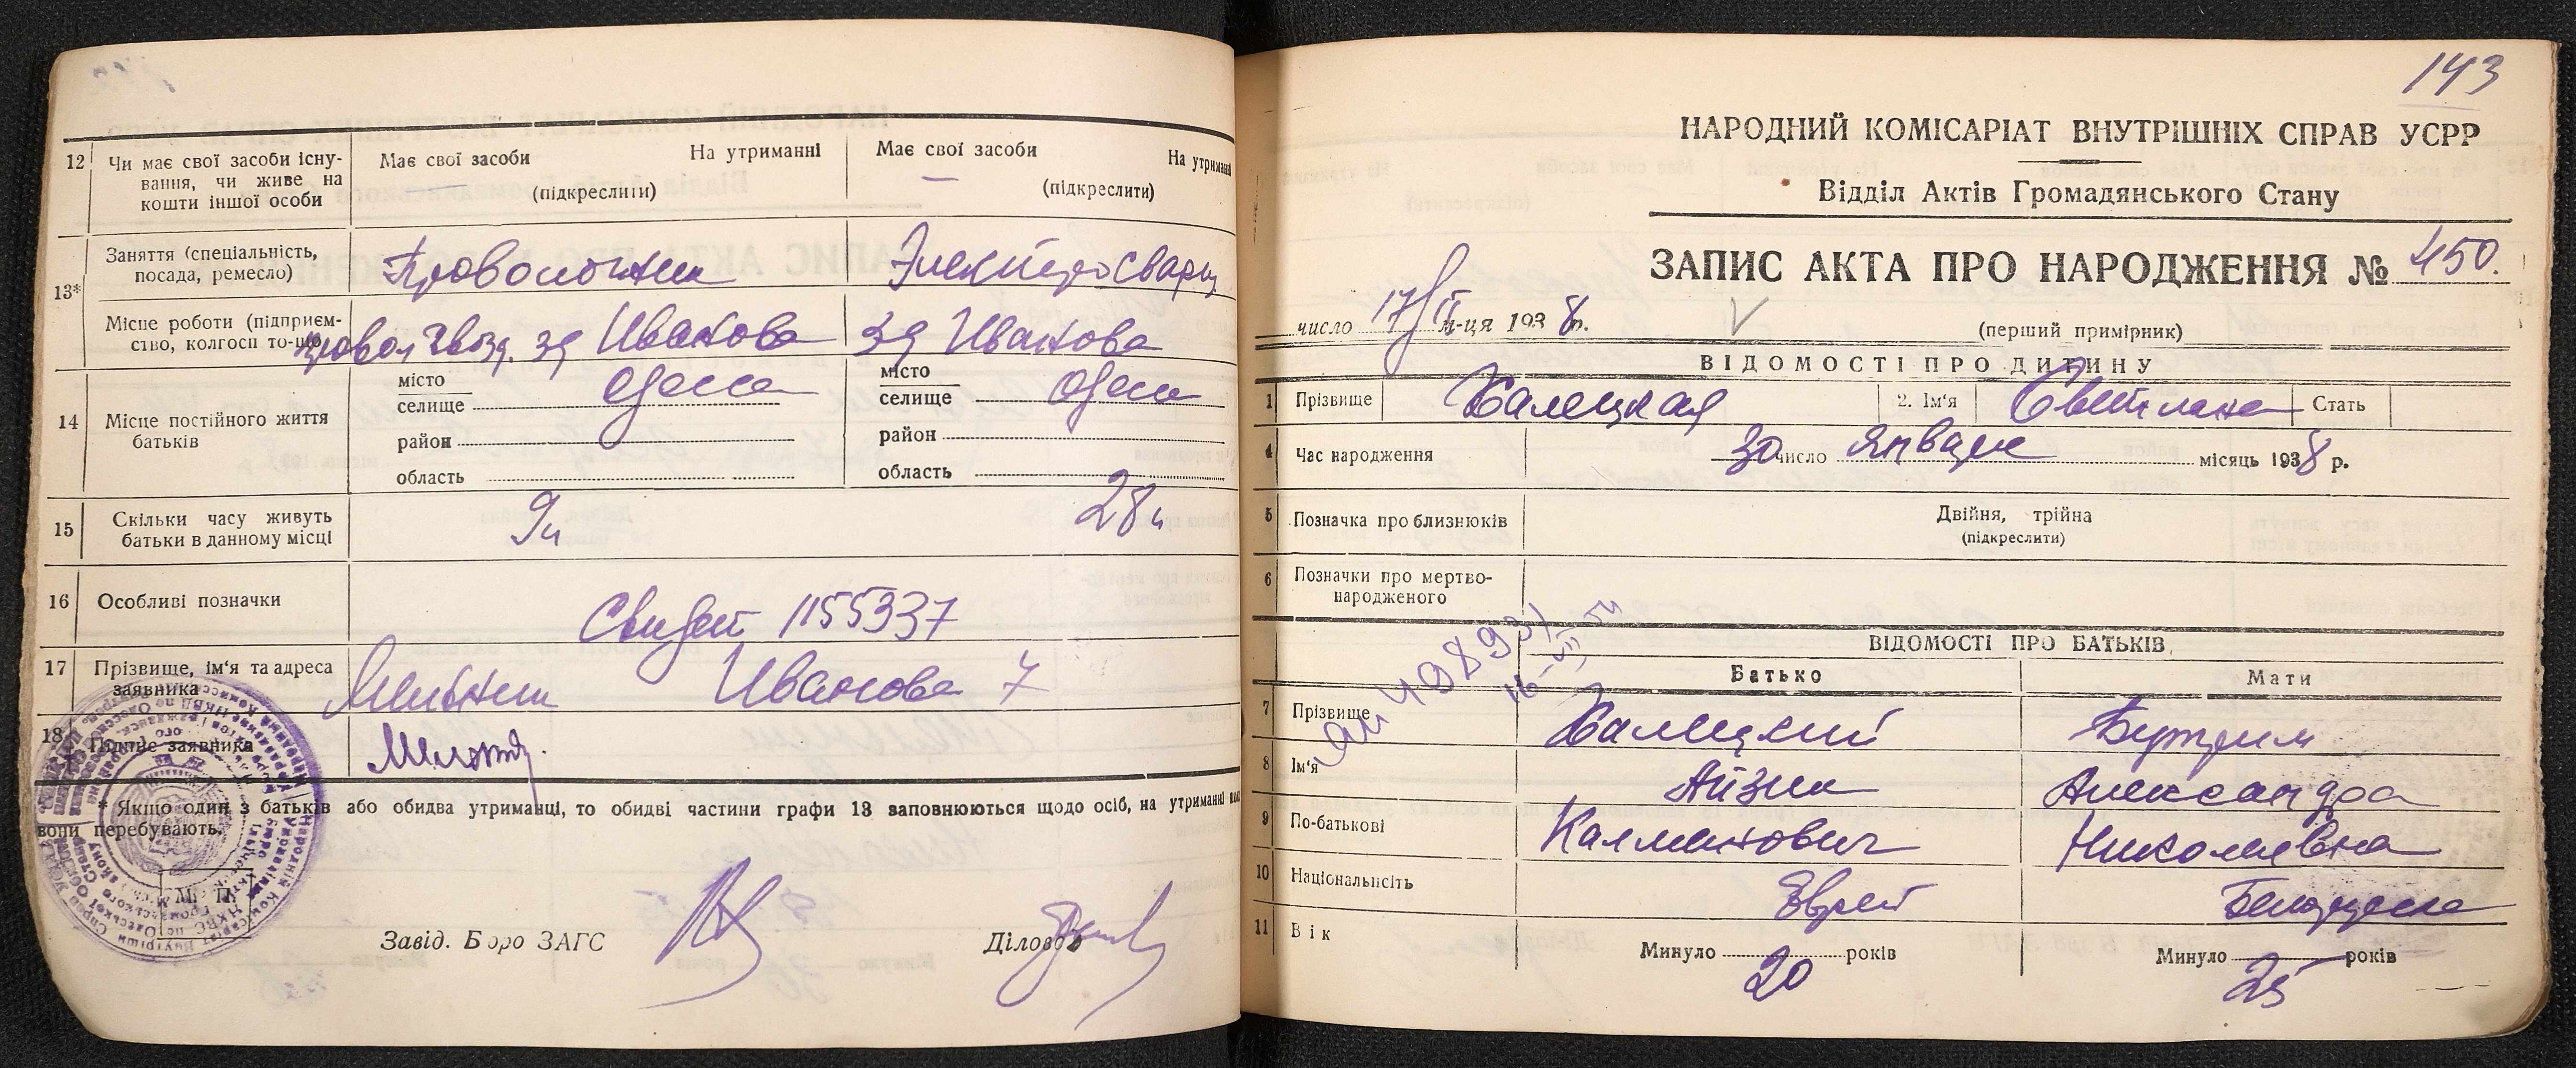 12 Чи має свої засоби існу-
вання, чи живе на
кошти іншої особи
Має свої засоби На утриманні
(підкреслити)
Має свої засоби На утриманні
(підкреслити)
13* Заняття (спеціальність,
посада, ремесло)
Проволочник
Электросварщ
Місце роботи (підприєм-
ство, колгосп то-що)
провол гвозд. зд Иванова
зд Иванова
14 Місце постійного життя
батьків
місто
селище Одесса
район
область
місто
селище Одесса
район
область
15 Скільки часу живуть
батьки в данному місці
9л
28л
16 Особливі позначки
Свидет 1155337
17 Прізвище, ім'я та адреса
заявника
Иванова 7
18 Підпис заявника
* Якщо один з батьків або обидва утриманці, то обидві частини графи 13 заповнюються щодо осіб, на утриманні
вони перебувають.
М. П.
Завід. Бюро ЗАГС
Діловод
143
НАРОДНИЙ КОМІСАРІАТ ВНУТРІШНІХ СПРАВ УСРР
Відділ Актів Громадянського Стану
ЗАПИС АКТА ПРО НАРОДЖЕННЯ № 450.
число 17/II м-ця 1938 р.
(перший примірник)
ВІДОМОСТІ ПРО ДИТИНУ
1 Прізвище Халецкая 2. Ім'я Светлана Стать
4 Час народження 30 число января місяць 1938 р.
5 Позначка про близнюків
Двійня, трійна
(підкреслити)
6 Позначки про мертво-
народженого
ВІДОМОСТІ ПРО БАТЬКІВ
Батько Мати
7 Прізвище Халецкий Бутрим
8 Ім'я Айзик Александра
9 По-батькові Калманович Николаевна
10 Національність Еврей Белорусска
11 Вік
Минуло 20 років
Минуло 25 років